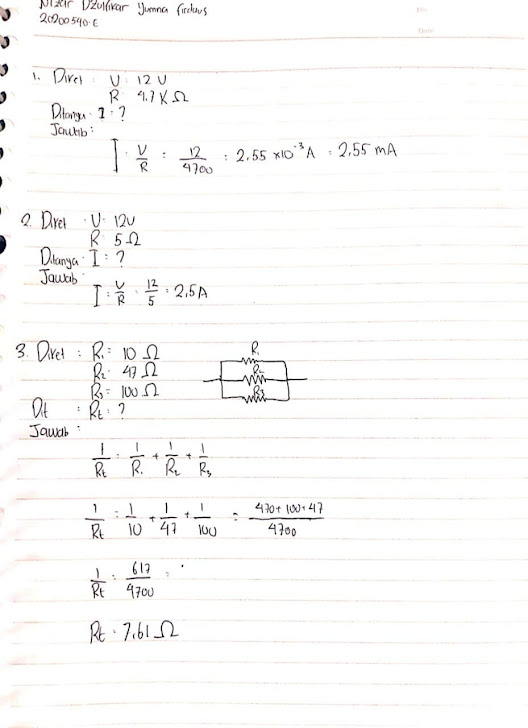 Nizar Dzulfikar Yumna Firdaus
20200540.E
1. Diket : V : 12 V
R : 4.7 K Ω
Ditanya : I : ?
Jawab :
I : V/R : 12/4700 : 2,55 x10⁻³ A = 2,55 mA
2. Diket : V : 12V
R : 5 Ω
Ditanya : I : ?
Jawab :
I : V/R : 12/5 : 2,5 A
3. Diket : R₁ = 10 Ω
R₂ : 47 Ω
R₃ = 100 Ω
Dit : Rt : ?
Jawab :
R₁
R₂
R₃
1/Rt : 1/R₁ + 1/R₂ + 1/R₃
1/Rt : 1/10 + 1/47 + 1/100 = 470+100+47/4700
1/Rt : 617/4700 :
Rt : 7,61 Ω